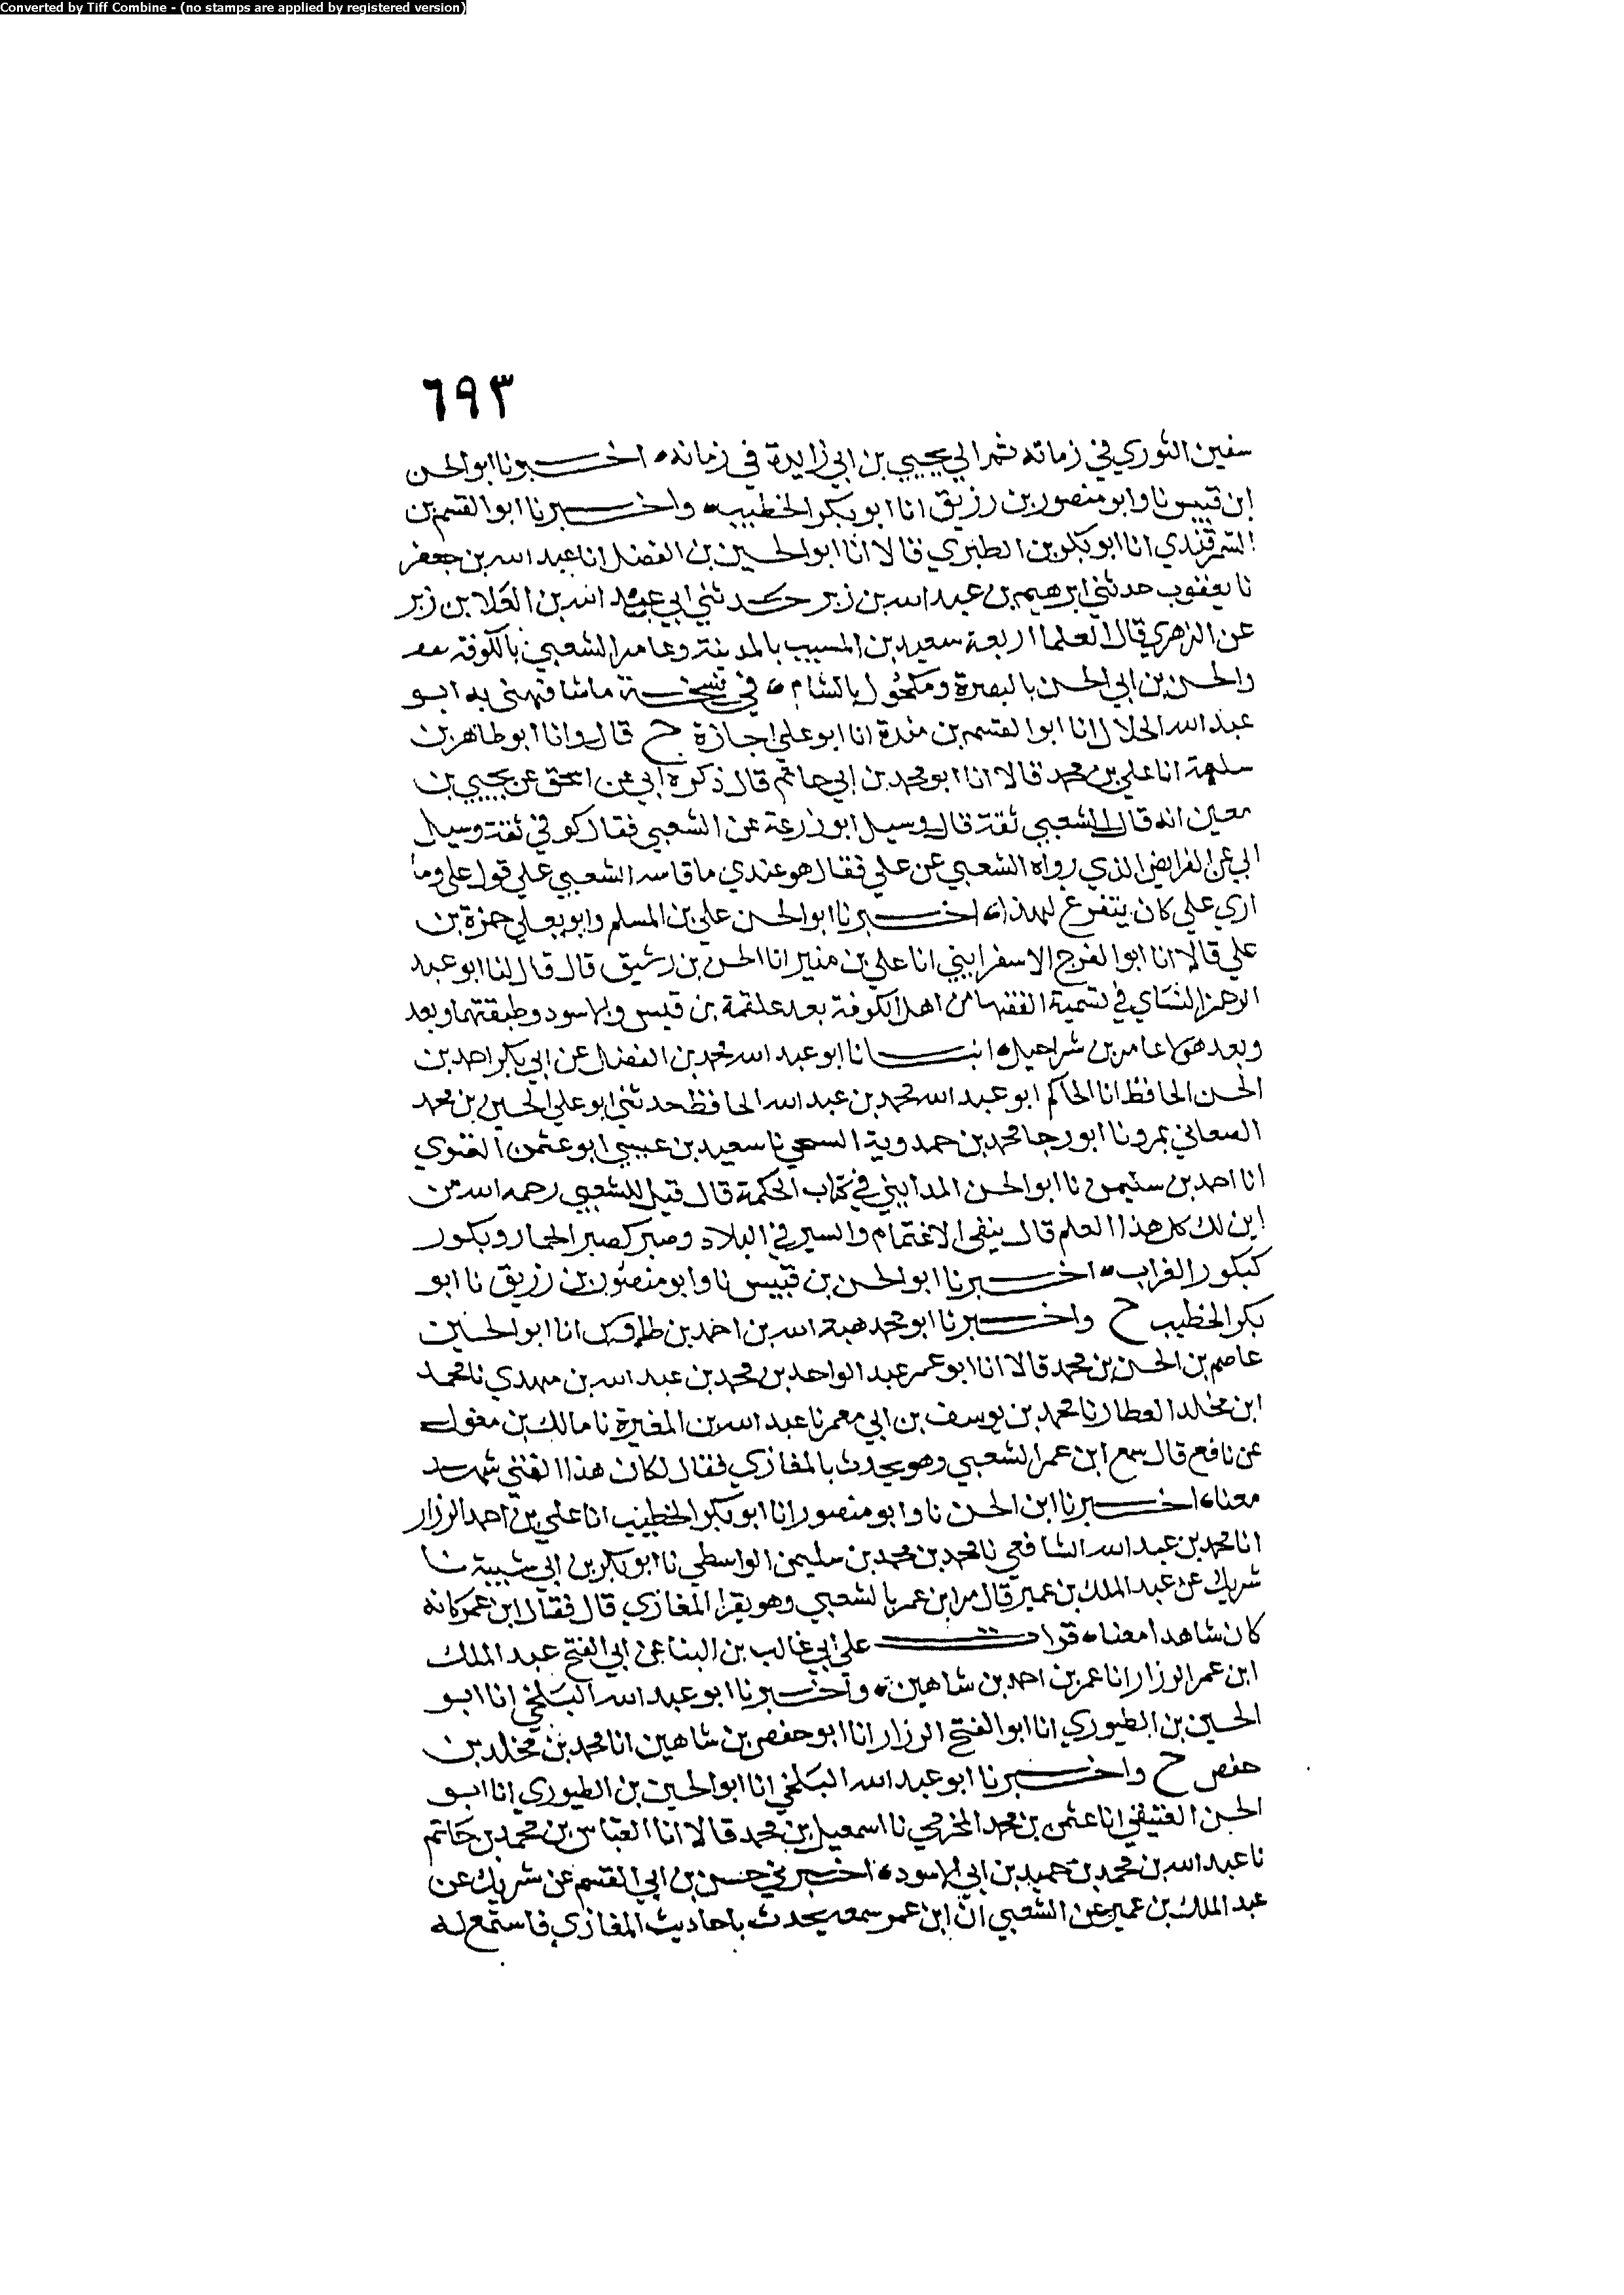 Converted by Tiff Combine - (no stamps are applied by registered version)
٦٩٣
سفين الثوري في زمانه ثم الي يحيي بن ابي زايدة في زمانه اخبرنا ابو الحسن
ابن قبيس نا وابو منصور بن رزيق انا ابو بكر الخطيب واخبرنا ابو القسم بن
السمرقندي انا ابو بكر بن الطبري قالا انا ابو الحسين بن الفضل انا عبد الله بن جعفر
نا يعقوب حدثني ابرهيم بن عبد الله بن زبر حدثني ابي عبد الله بن العلا بن زبر
عن الزهري قال العلما اربعة سعيد بن المسيب بالمدينة وعامر الشعبي بالكوفة
والحسن بن ابي الحسن بالبصرة ومكحول بالشام في نسخة ما شافهني به ابو
عبد الله الخلال انا ابو القسم بن مندة انا ابو علي اجازة ح قال وانا ابو طاهر بن
سلمة انا علي بن محمد قالا انا ابو محمد بن ابي حاتم قال ذكره ابي عن اسحق عن يحيي بن
معين انه قال الشعبي ثقة قال وسيل ابو زرعة عن الشعبي فقال كوفي ثقة وسيل
ابي عن الفرايض الذي رواه الشعبي عن علي فقال هو عندي ما قاسه الشعبي علي قول علي وما
اري علي كان يتفرغ لهذا اخبرنا ابو الحسن علي بن المسلم وابو يعلي حمزة بن
علي قالا انا ابو الفرج الاسفرايني انا علي بن منير انا الحسن بن رشيق قال قال لنا ابو عبد
الرحمن النساي في تسمية الفقها من اهل الكوفة بعد علقمة بن قيس والاسود وطبقتهما وبعد
وبعد هولا عامر بن شراحيل انبانا ابو عبد الله محمد بن الفضل عن ابي بكر احمد بن
الحسن الحافظ انا الحاكم ابو عبد الله محمد بن عبد الله الحافظ حدثني ابو علي الحسين بن محمد
الصعاني بمرو نا ابو رجا محمد بن حمدوية السعي نا سعيد بن عيسي ابو عثمن الغنوي
انا احمد بن سليمن نا ابو الحسن المدايني في كتاب الحكمة قال قيل للشعبي رحمه الله من
اين لك كل هذا العلم قال ينفي الاغتمام والسير في البلاد وصبر كصبر الحمار وبكور
كبكور الغراب اخبرنا ابو الحسن بن قبيس نا وابو منصور بن زريق نا ابو
بكر الخطيب ح واخبرنا ابو محمد هبة الله بن احمد بن طاووس انا ابو الحسين
عاصم بن الحسن بن محمد قالا انا ابو عمر عبد الواحد بن محمد بن عبد الله بن مهدي نا محمد
ابن مخلد العطار نا محمد بن يوسف بن ابي معمر نا عبد الله بن المغيرة نا مالك بن مغول
عن نافع قال سمع ابن عمر الشعبي وهو يحدث بالمغازي فقال لكان هذا الفتي شهد
معنا اخبرنا ابن الحسن نا وابو منصور انا ابو بكر الخطيب انا علي بن احمد الرزار
انا محمد بن عبد الله الشافعي نا محمد بن محمد بن سليمن الواسطي نا ابو بكر بن ابي شيبة نا
شريك عن عبد الملك بن عمير قال مر ابن عمر بالشعبي وهو يقرا المغازي قال فقال ابن عمر كانه
كان شاهدا معنا قرات علي ابي غالب بن البنا عن ابي الفتح عبد الملك
ابن عمر الرزار انا عمر بن احمد بن شاهين واخبرنا ابو عبد الله البلخي انا ابو
الحسين بن الطيوري انا ابو الفتح الرزار انا ابو حفص بن شاهين انا محمد بن مخلد بن
حفص ح واخبرنا ابو عبد الله البلخي انا ابو الحسين بن الطيوري انا ابو
الحسن العتيقي انا عثمن بن محمد المخرمي نا اسمعيل بن محمد قالا انا العباس بن محمد بن حاتم
نا عبد الله بن محمد بن حميد بن ابي الاسود اخبرني حسن بن ابي القسم عن شريك عن
عبد الملك بن عمير عن الشعبي ان ابن عمر سمعه يحدث باحاديث المغازي فاستمع له